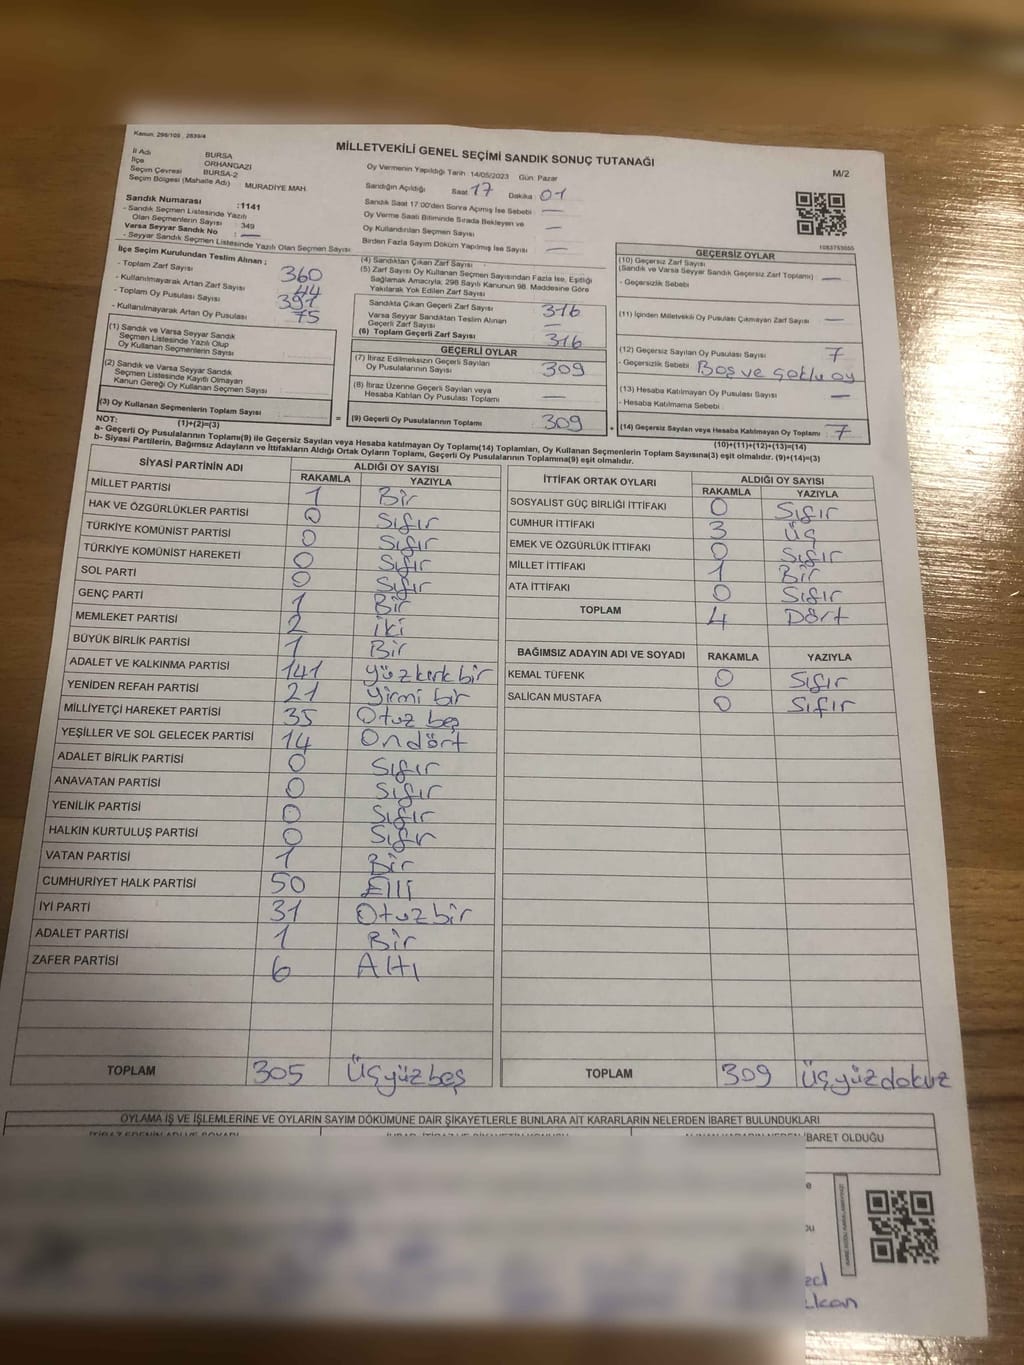 Kanun: 298/105 , 2839/4
MİLLETVEKİLİ GENEL SEÇİMİ SANDIK SONUÇ TUTANAĞI
M/2
İl Adı : BURSA
İlçe : ORHANGAZİ
Seçim Çevresi : BURSA-2
Seçim Bölgesi (Mahalle Adı) : MURADİYE MAH.
Oy Vermenin Yapıldığı Tarih 14/05/2023 Gün: Pazar
Sandığın Açıldığı Saat 17 Dakika : 01
Sandık Saat 17.00'den Sonra Açılmış İse Sebebi : —
Oy Verme Saati Bitiminde Sırada Bekleyen ve
Oy Kullandırılan Seçmen Sayısı : —
Birden Fazla Sayım Döküm Yapılmış İse Sayısı : —
Sandık Numarası :1141
- Sandık Seçmen Listesinde Yazılı
Olan Seçmenlerin Sayısı : 349
Varsa Seyyar Sandık No : —
- Seyyar Sandık Seçmen Listesinde Yazılı Olan Seçmen Sayısı:
İlçe Seçim Kurulundan Teslim Alınan ;
- Toplam Zarf Sayısı 360
- Kullanılmayarak Artan Zarf Sayısı 44
- Toplam Oy Pusulası Sayısı 391
- Kullanılmayarak Artan Oy Pusulası 75
(1) Sandık ve Varsa Seyyar Sandık
Seçmen Listesinde Yazılı Olup
Oy Kullanan Seçmenlerin Sayısı
(2) Sandık ve Varsa Seyyar Sandık
Seçmen Listesinde Kayıtlı Olmayan
Kanun Gereği Oy Kullanan Seçmen Sayısı
(3) Oy Kullanan Seçmenlerin Toplam Sayısı
(1)+(2)=(3)
(4) Sandıktan Çıkan Zarf Sayısı :
(5) Zarf Sayısı Oy Kullanan Seçmen Sayısından Fazla İse, Eşitliği
Sağlamak Amacıyla, 298 Sayılı Kanunun 98. Maddesine Göre
Yakılarak Yok Edilen Zarf Sayısı
Sandıkta Çıkan Geçerli Zarf Sayısı : 316
Varsa Seyyar Sandıktan Teslim Alınan
Geçerli Zarf Sayısı —
(6) Toplam Geçerli Zarf Sayısı 316
GEÇERLİ OYLAR
(7) İtiraz Edilmeksizin Geçerli Sayılan
Oy Pusulalarının Sayısı 309
(8) İtiraz Üzerine Geçerli Sayılan veya
Hesaba Katılan Oy Pusulası Toplamı —
= (9) Geçerli Oy Pusulalarının Toplamı 309
GEÇERSİZ OYLAR
(10) Geçersiz Zarf Sayısı
(Sandık ve Varsa Seyyar Sandık Geçersiz Zarf Toplamı) —
- Geçersizlik Sebebi :
(11) İçinden Milletvekili Oy Pusulası Çıkmayan Zarf Sayısı —
(12) Geçersiz Sayılan Oy Pusulası Sayısı 7
- Geçersizlik Sebebi : Boş ve çoklu oy
(13) Hesaba Katılmayan Oy Pusulası Sayısı —
- Hesaba Katılmama Sebebi :
+ (14) Geçersiz Sayılan veya Hesaba Katılmayan Oy Toplamı 7
(10)+(11)+(12)+(13)=(14)
NOT:
a- Geçerli Oy Pusulalarının Toplamı(9) ile Geçersiz Sayılan veya Hesaba katılmayan Oy Toplamı(14) Toplamları, Oy Kullanan Seçmenlerin Toplam Sayısına(3) eşit olmalıdır. (9)+(14)=(3)
b- Siyasi Partilerin, Bağımsız Adayların ve İttifakların Aldığı Ortak Oyların Toplamı, Geçerli Oy Pusulalarının Toplamına(9) eşit olmalıdır.
SİYASİ PARTİNİN ADI ALDIĞI OY SAYISI
RAKAMLA YAZIYLA
MİLLET PARTİSİ 1 Bir
HAK VE ÖZGÜRLÜKLER PARTİSİ 0 Sıfır
TÜRKİYE KOMÜNİST PARTİSİ 0 Sıfır
TÜRKİYE KOMÜNİST HAREKETİ 0 Sıfır
SOL PARTİ 0 Sıfır
GENÇ PARTİ 1 Bir
MEMLEKET PARTİSİ 2 iki
BÜYÜK BİRLİK PARTİSİ 1 Bir
ADALET VE KALKINMA PARTİSİ 141 yüzkırkbir
YENİDEN REFAH PARTİSİ 21 Yirmi bir
MİLLİYETÇİ HAREKET PARTİSİ 35 Otuz beş
YEŞİLLER VE SOL GELECEK PARTİSİ 14 Ondört
ADALET BİRLİK PARTİSİ 0 Sıfır
ANAVATAN PARTİSİ 0 Sıfır
YENİLİK PARTİSİ 0 Sıfır
HALKIN KURTULUŞ PARTİSİ 0 Sıfır
VATAN PARTİSİ 1 Bir
CUMHURİYET HALK PARTİSİ 50 Elli
İYİ PARTİ 31 Otuzbir
ADALET PARTİSİ 1 Bir
ZAFER PARTİSİ 6 Altı
TOPLAM 305 Üçyüzbeş
İTTİFAK ORTAK OYLARI ALDIĞI OY SAYISI
RAKAMLA YAZIYLA
SOSYALİST GÜÇ BİRLİĞİ İTTİFAKI 0 Sıfır
CUMHUR İTTİFAKI 3 üç
EMEK VE ÖZGÜRLÜK İTTİFAKI 0 Sıfır
MİLLET İTTİFAKI 1 Bir
ATA İTTİFAKI 0 Sıfır
TOPLAM 4 Dört
BAĞIMSIZ ADAYIN ADI VE SOYADI RAKAMLA YAZIYLA
KEMAL TÜFENK 0 Sıfır
SALİCAN MUSTAFA 0 Sıfır
TOPLAM 309 Üçyüzdokuz
OYLAMA İŞ VE İŞLEMLERİNE VE OYLARIN SAYIM DÖKÜMÜNE DAİR ŞİKAYETLERLE BUNLARA AİT KARARLARIN NELERDEN İBARET BULUNDUKLARI
İBARET OLDUĞU